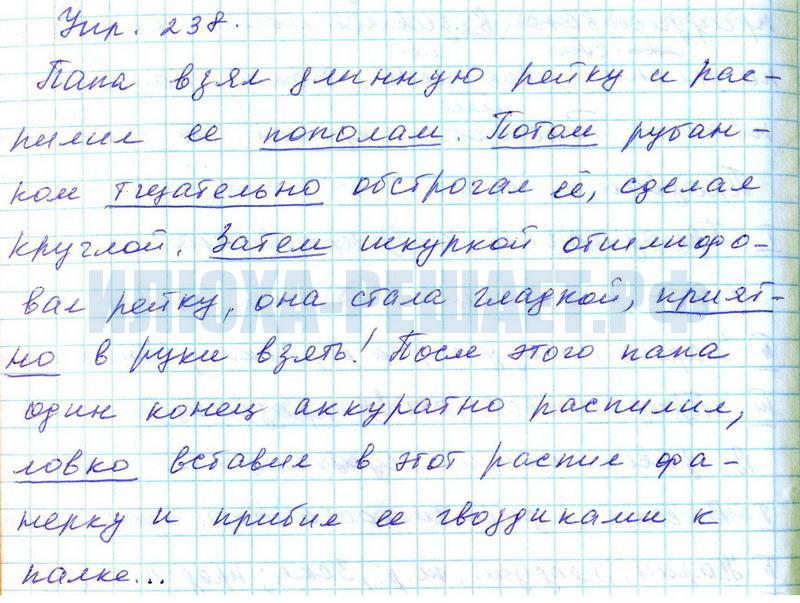 Упр. 238.
Папа взял длинную рейку и рас-
пилил ее пополам. Потом рубан-
ком тщательно обстрогал её, сделал
круглой. Затем шкуркой отшлифо-
вал рейку, она стала гладкой, прият-
но в руки взять! После этого папа
один конец аккуратно распилил,
ловко вставил в этот распил фа-
нерку и прибил ее гвоздиками к
палке...
ИЛЮХА-РЕШАЕТ.РФ